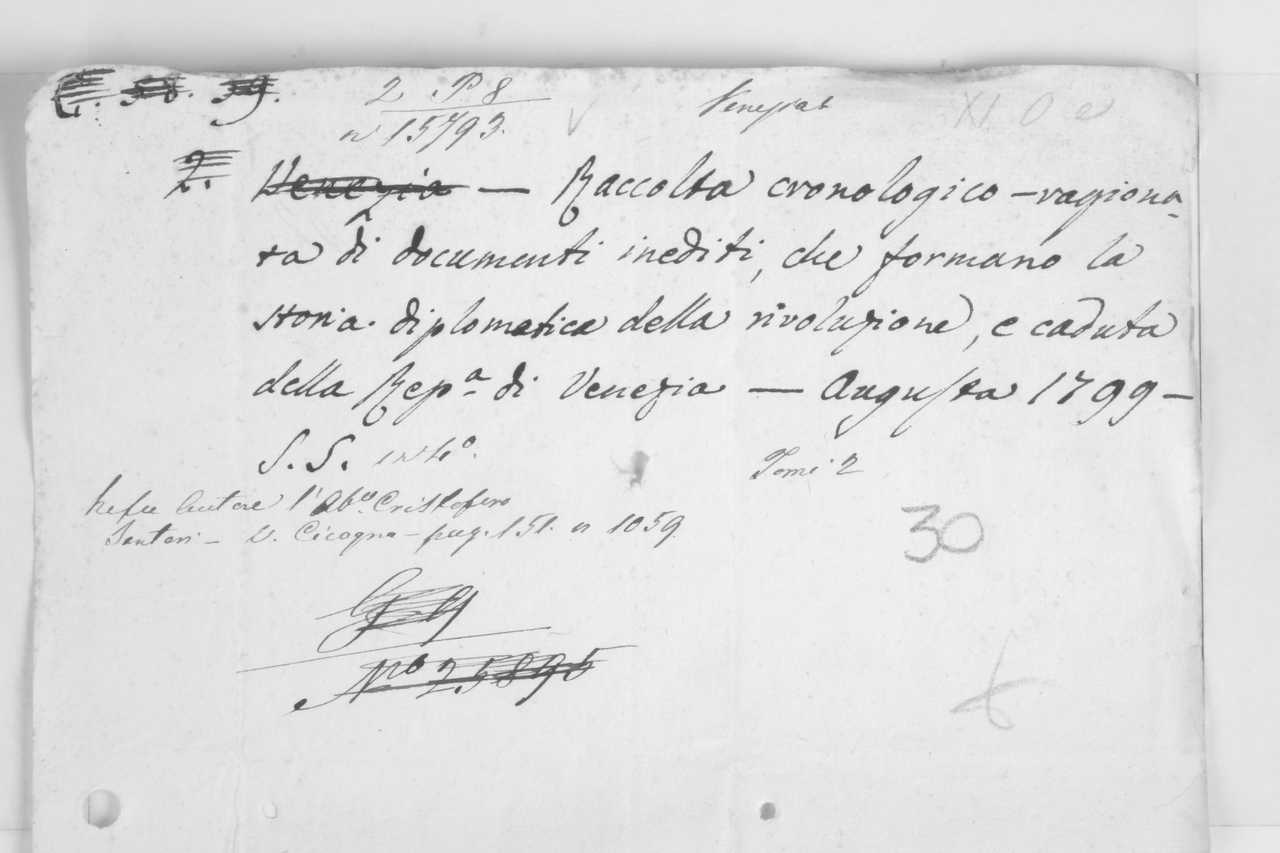 2 P 8
n° 15793.
Venezia
2. Venezia — Raccolta cronologico-ragiona-
ta di documenti inediti, che formano la
storia diplomatica della rivoluzione, e caduta
della Rep.ª di Venezia — Augusta 1799 —
S. S. in 4°.
Tomi 2
autore l'Ab.e Cristoforo
Tentori - V. Cicogna - pag. 151. n 1059.
30
N.o 25895